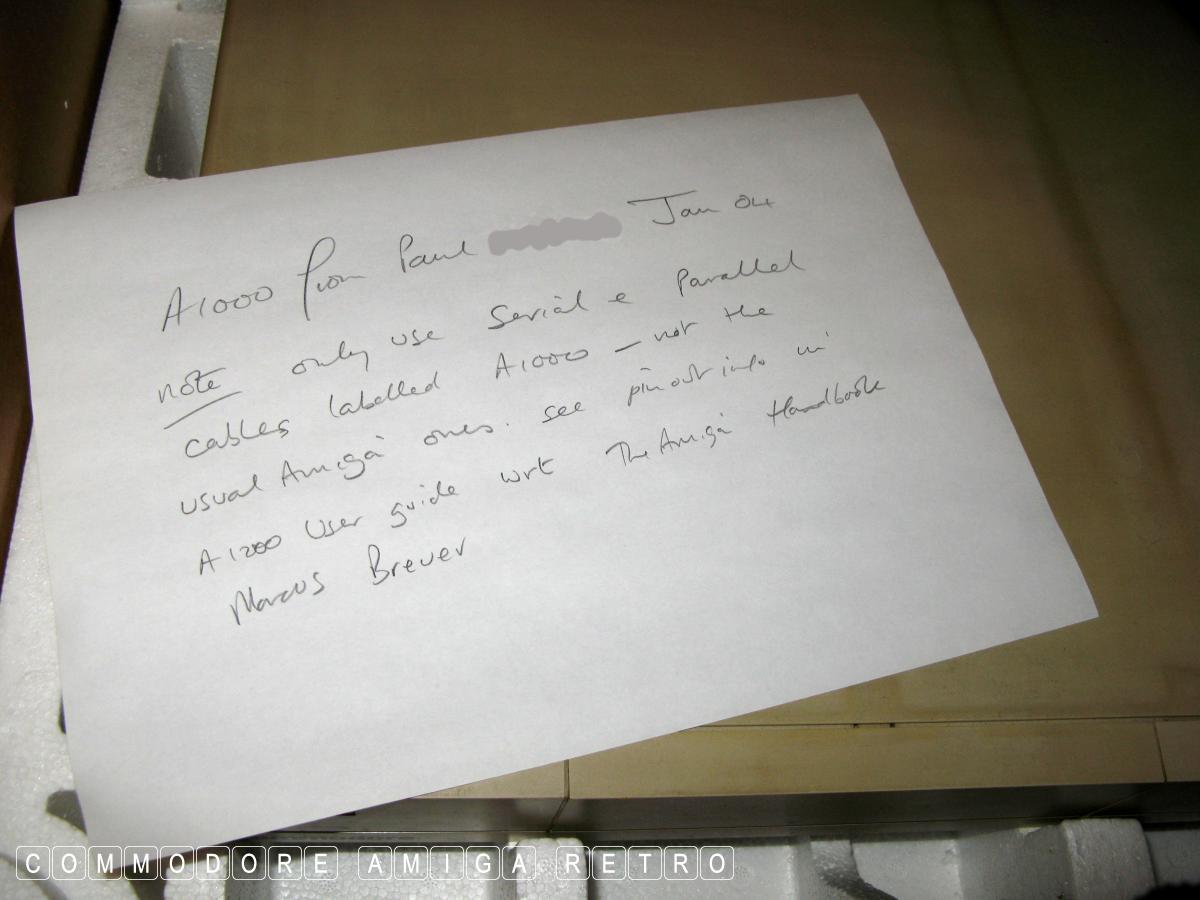 A1000 from Paul Jan 04
note only use Serial & Parallel
cables labelled A1000 – not the
usual Amiga ones. see pinout info in
A1200 User guide wrt The Amiga Handbook
Marcus Breuer
COMMODORE AMIGA RETRO